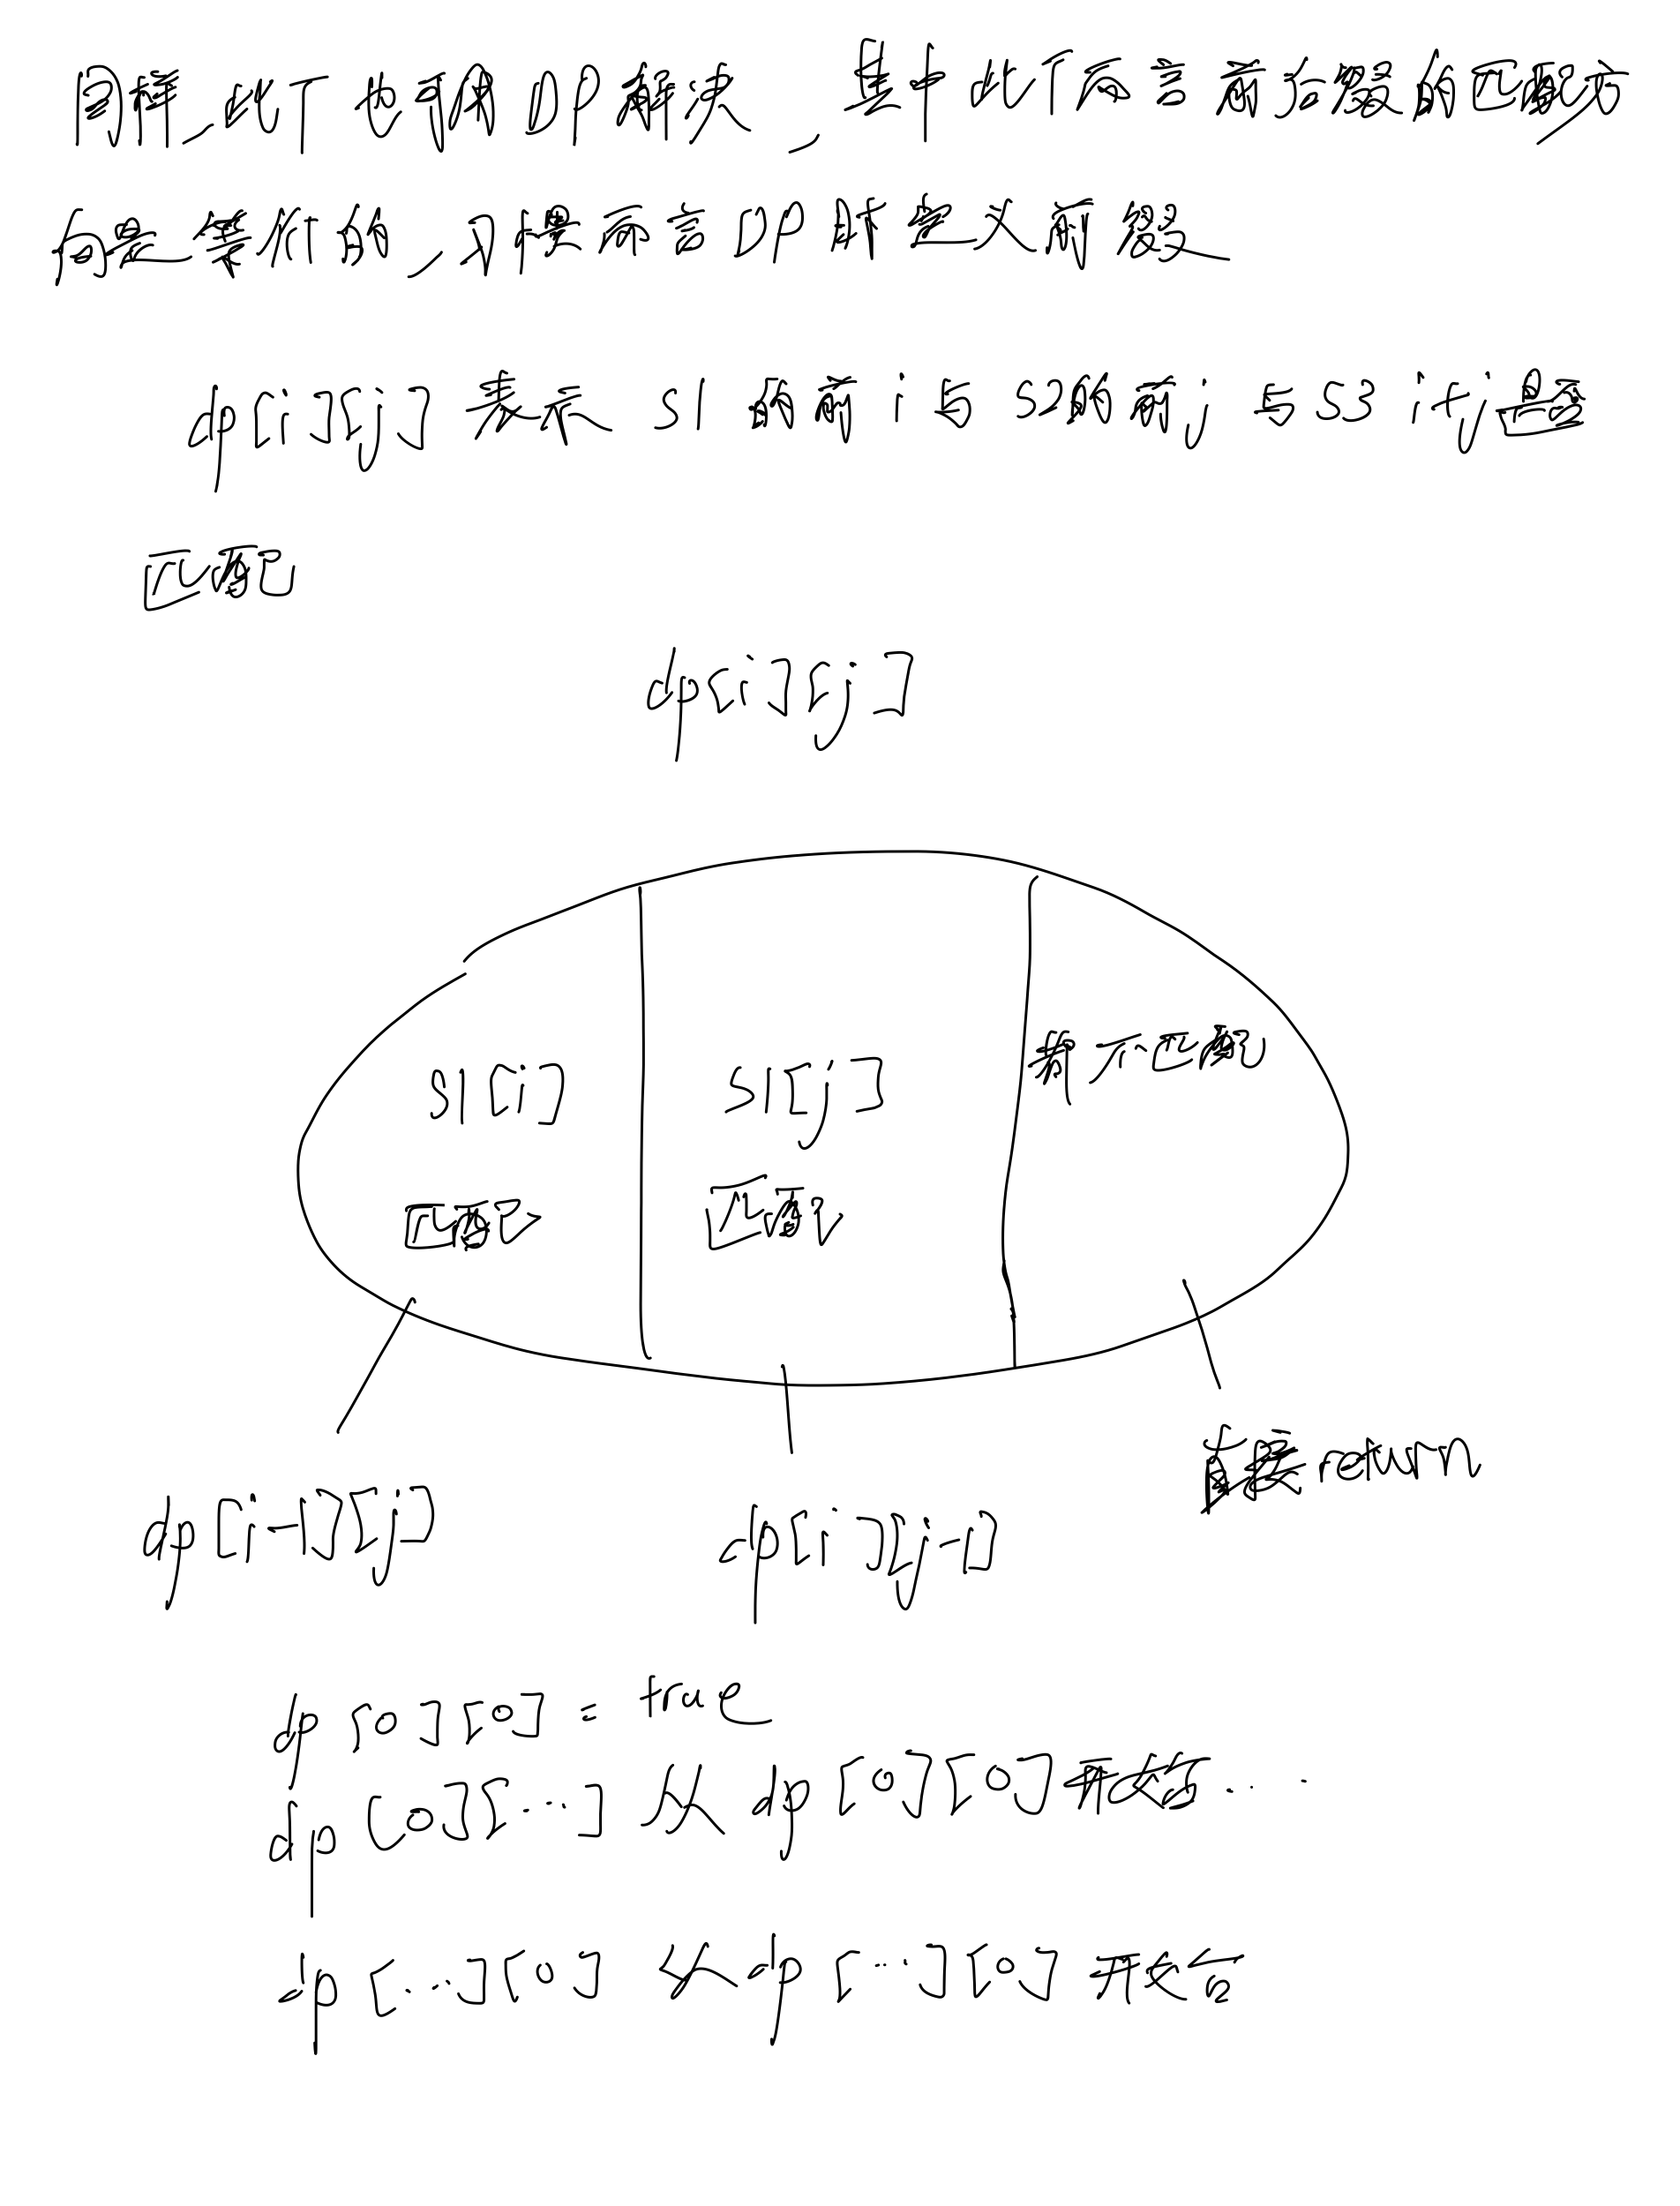 同样,此T也可用DP解决,其中此T而言前后缀的匹配方
向是等价的,习惯而言DP时定义前缀
dp[i][j]表示 s1的前i与s2的前j与s3 i+j是否
匹配
dp[i][j]
s1[i] s1[j] 都不匹配
匹配 匹配
直接return
dp[i-1][j] dp[i][j-1]
dp[0][0] = true
dp[0][...] 从 dp[0][0]开始...
dp[...][0] 从dp[...][0]开始